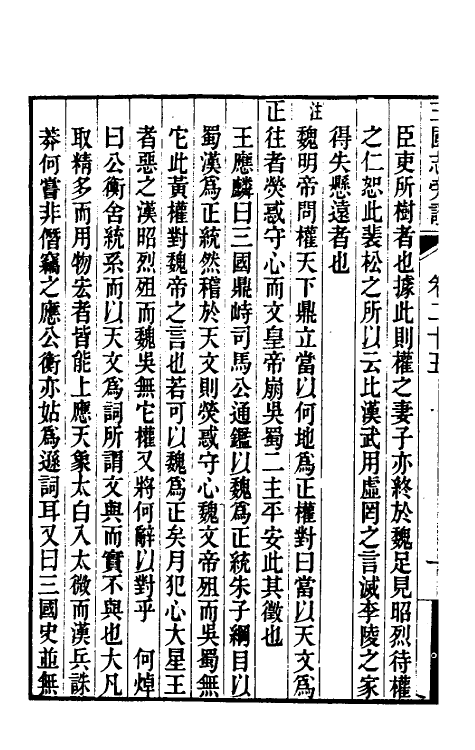 三國志旁證　卷二十五
臣吏所樹者也據此則權之妻子亦終於魏足見昭烈待權
之仁恕此裴松之所以云比漢武用虛罔之言滅李陵之家
得失懸遠者也
注魏明帝問權天下鼎立當以何地為正權對曰當以天文為
正往者熒惑守心而文皇帝崩吳蜀二主平安此其徵也
王應麟曰三國鼎峙司馬公通鑑以魏為正統朱子綱目以
蜀漢為正統然稽於天文則熒惑守心魏文帝殂而吳蜀無
它此黃權對魏帝之言也若可以魏為正矣月犯心大星王
者惡之漢昭烈殂而魏吳無它權又將何辭以對乎　何焯
曰公衡舍統系而以天文為詞所謂文與而實不與也大凡
取精多而用物宏者皆能上應天象太白入太微而漢兵誅
莽何嘗非僭竊之應公衡亦姑為遜詞耳又曰三國史並無